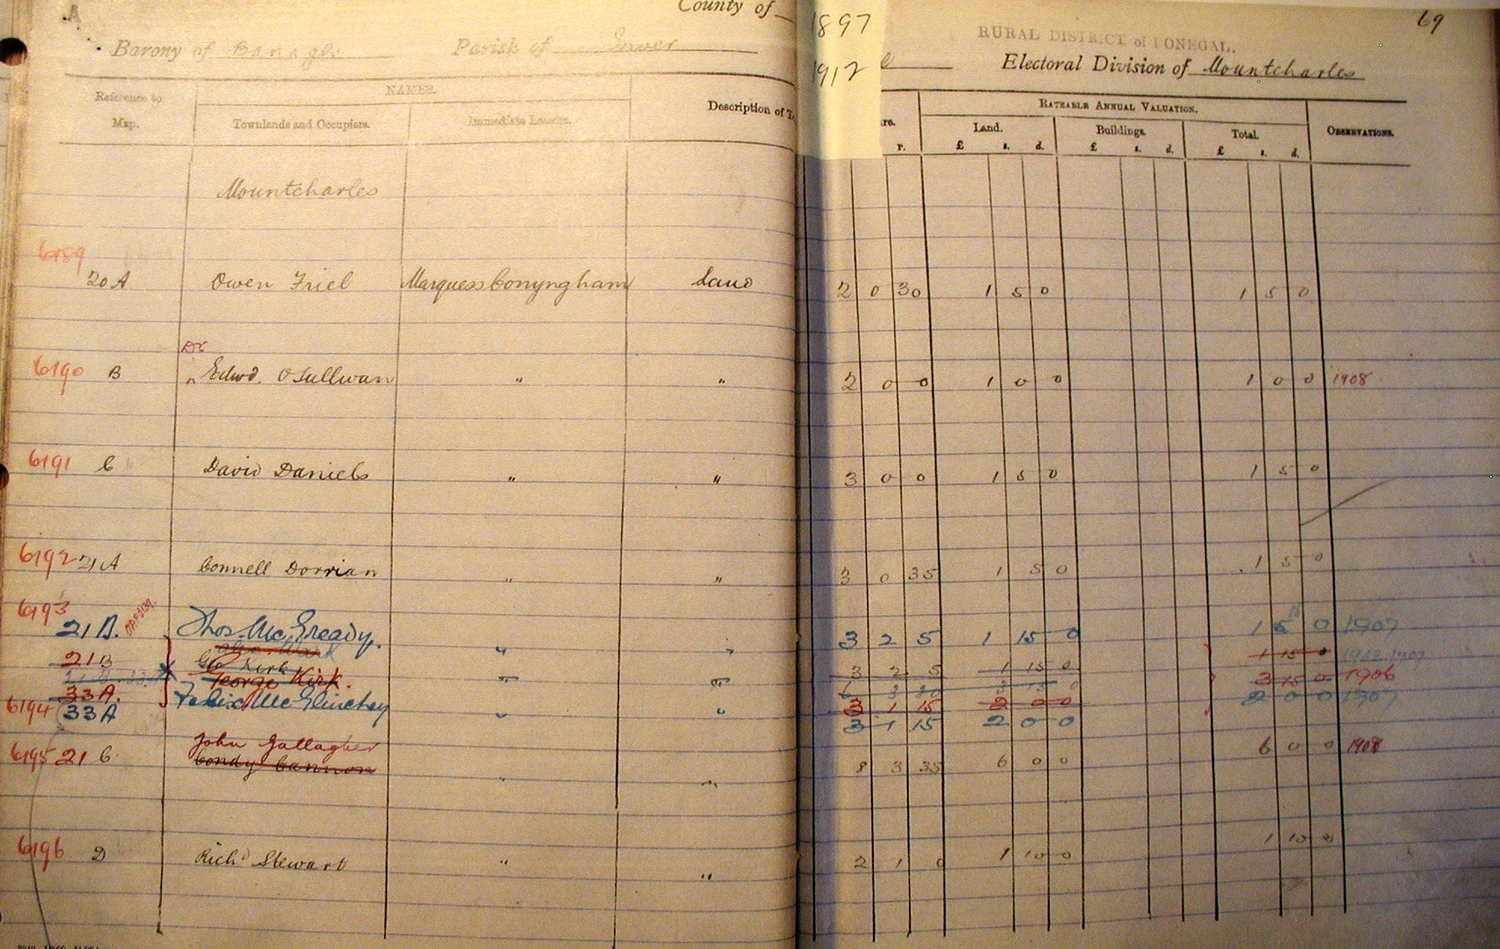 County of
1897
1912
69
Barony of Banagh
Parish of Inver
RURAL DISTRICT of DONEGAL.
Electoral Division of Mountcharles
Reference to Map.
NAMES.
Townlands and Occupiers.
Immediate Lessors.
Description of T
re.
r.
RATEABLE ANNUAL VALUATION.
Land.
£ s. d.
Buildings.
£ s. d.
Total.
£ s. d.
OBSERVATIONS.
Mountcharles
6189
20 A Owen Friel Marquess Conyngham Land 2 0 30 1 5 0 1 5 0
Dr
6190 B ^ Edwd. O'Sullivan " " 2 0 0 1 0 0 1 0 0 1908
6191 C David Daniels " " 3 0 0 1 5 0 1 5 0
6192 21 A Connell Dorrian " " 3 0 35 1 5 0 1 5 0
6193
21 B. Thos. McGready. " " 3 2 5 1 15 0 1 15 0 1907
21 B Geo Kirk 3 2 5 1 15 0 1 15 0 1902 1907
George Kirk. " " 3 15 0 3 15 0 1906
33 A. 3 1 15 2 0 0 2 0 0 1907
6194 33 A Felix McGlinchey " " 3 1 15 2 0 0
John Gallagher
6195 21 C Condy Cannon " " 8 3 35 6 0 0 6 0 0 1908
6196 D Richd Stewart " " 2 1 0 1 10 0 1 10 0